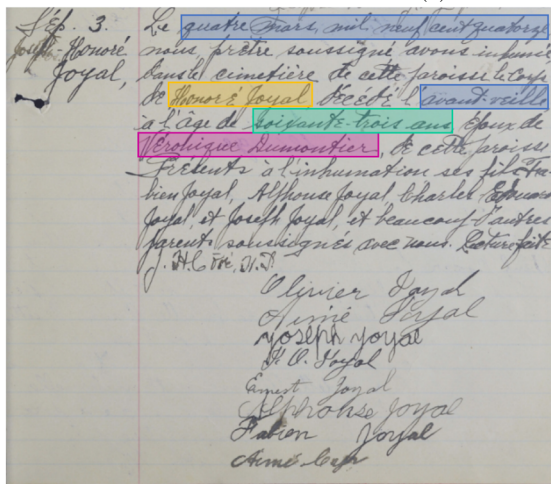 Sép. 3.
Joseph-Honoré
Joyal,
Le quatre Mars, mil neuf cent quatorze
nous, prêtre soussigné avons inhumé
dans le cimetière de cette paroisse le corps
de Honoré Joyal décédé l'avant-veille
à l'âge de soixante-trois ans Époux de
Véronique Dumontier, de cette paroisse
Présents à l'inhumation ses fils Fa-
bien Joyal, Alphonse Joyal, Charles Edouard
Joyal, et Joseph Joyal, et beaucoup d'autres
parents soussignés avec nous. Lecture faite
Olivier Joyal
Aimé Joyal
Joseph Joyal
H. O. Joyal
Ernest Joyal
Alphonse Joyal
Fabien Joyal
Aimé